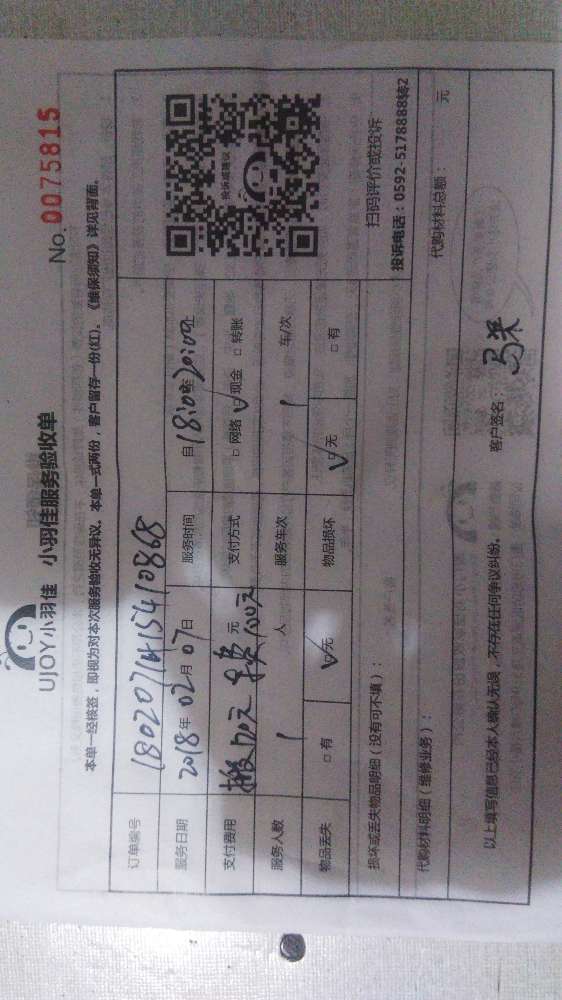 UJOY小羽佳 小羽佳服务验收单
No. 0075815
本单一经核签，即视为对本次服务验收无异议。本单一式两份，客户留存一份(红)。《维保须知》详见背面。
订单编号 1802071415410868
服务日期 2018年 02月 07日 服务时间 自18:00至20:00止
支付费用 搬 元 100元 支付方式 □网络 ☑现金 □转账
服务人数 1 人 服务车次 1 车/次
物品丢失 □有 ☑无 物品损坏 ☑无 □有
投诉或建议
扫码评价或投诉
投诉电话：0592-5178888转2
损坏或丢失物品明细（没有可不填）：
代购材料明细（维修业务）： 代购材料总额： 元
以上填写信息已经本人确认无误，不存在任何争议纠纷。 客户签名：